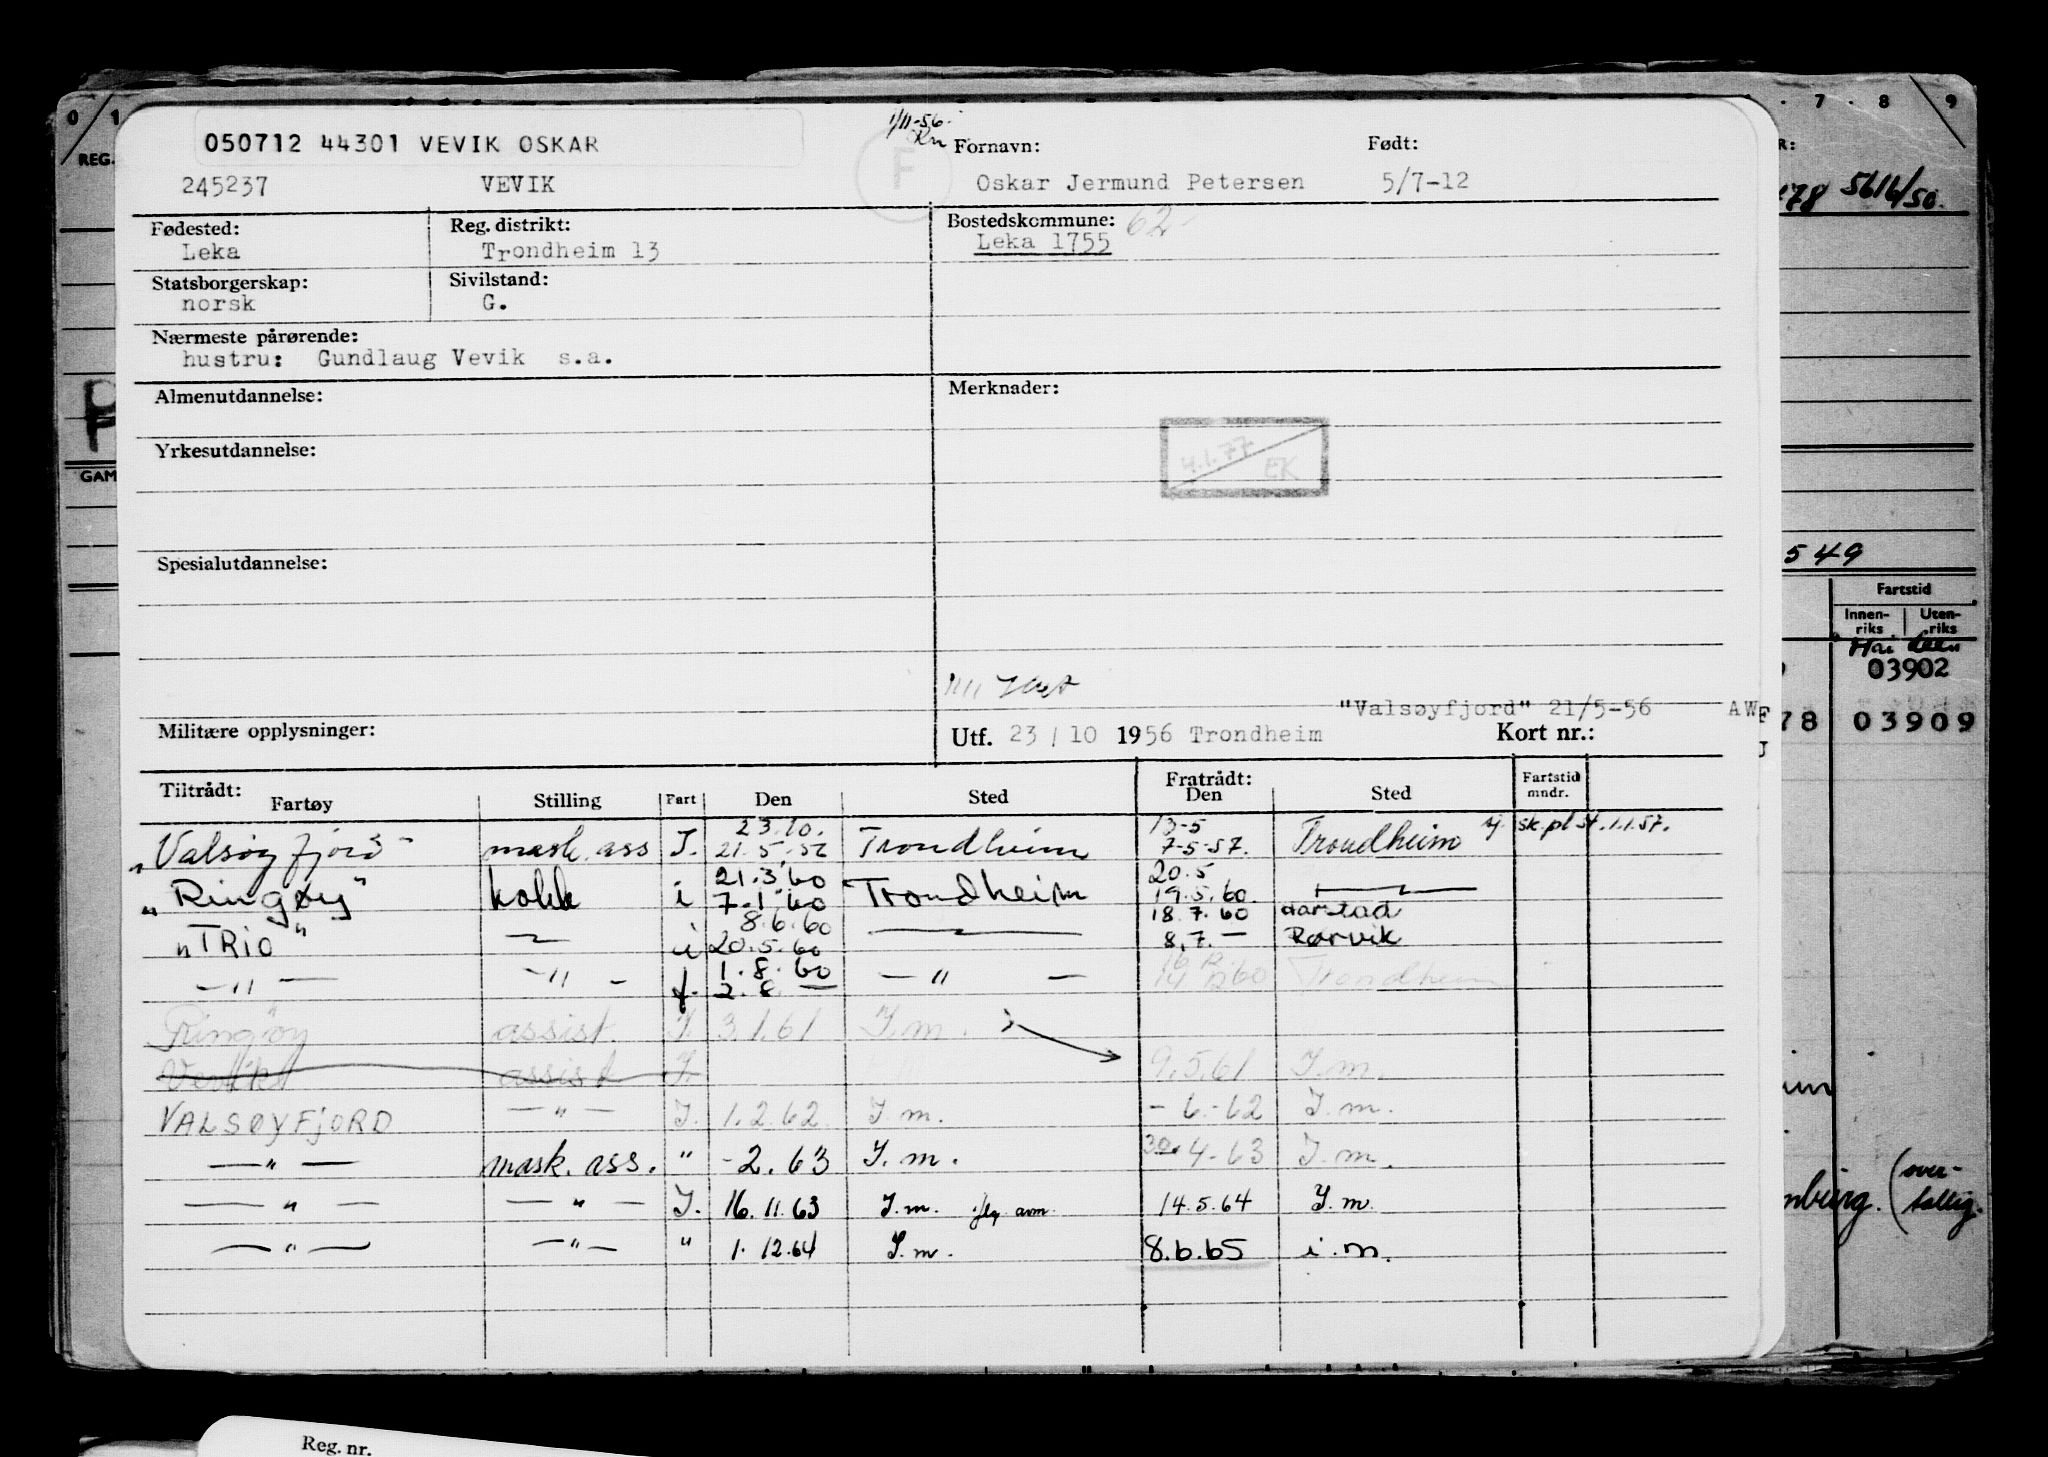 0 1 7 8 9
1/11-56.
050712 44301 VEVIK OSKAR
F
Fornavn: Født:
REG.
245237 VEVIK Oskar Jermund Petersen 5/7-12
78 5616/50.
Fødested: Reg. distrikt: Bostedskommune: 62
Leka Trondheim 13 Leka 1755
Statsborgerskap: Sivilstand:
norsk G.
Nærmeste pårørende:
hustru: Gundlaug Vevik s.a.
Almenutdannelse: Merknader:
Yrkesutdannelse:
4.1.77
EK
GAM
Spesialutdannelse:
549
Fartstid
Innen-riks Uten-riks
03902
"Valsøyfjord" 21/5-56
78 03909
Militære opplysninger: Utf. 23/10 1956 Trondheim Kort nr.:
Tiltrådt: Fratrådt:
Fartøy Stilling Fart Den Sted Den Sted Fartstid mndr.
23.10. 13-5
"Valsøyfjord" mask. ass I. 21.5.56 Trondheim 7-5-57. Trondheim sk.pl st. 1.1.57.
21.3.60 20.5
"Ringøy" kokk i 7.1.60 Trondheim 19.5.60.
8.6.60 18.7.60 Harstad
"TRio" i 20.5.60 8.7. — Rørvik
1.8.60
— " — — " — f. 2.8. — — " — 14 12 60 Trondheim
Ringøy assist. I. 3.1.61 I.m.
assist I. 9.5.61 I.m.
VALSØYFJORD — " — I. 1.2.62 I.m. - 6.-62 I.m.
— " — mask. ass. " -2.63 I.m. 30.4-63 I.m.
— " — — " — I. 16.11.63 I.m. 14.5.64 I.m.
— " — — " — " 1.12.64 I.m. 8.6.65 i.m.
Reg. nr.